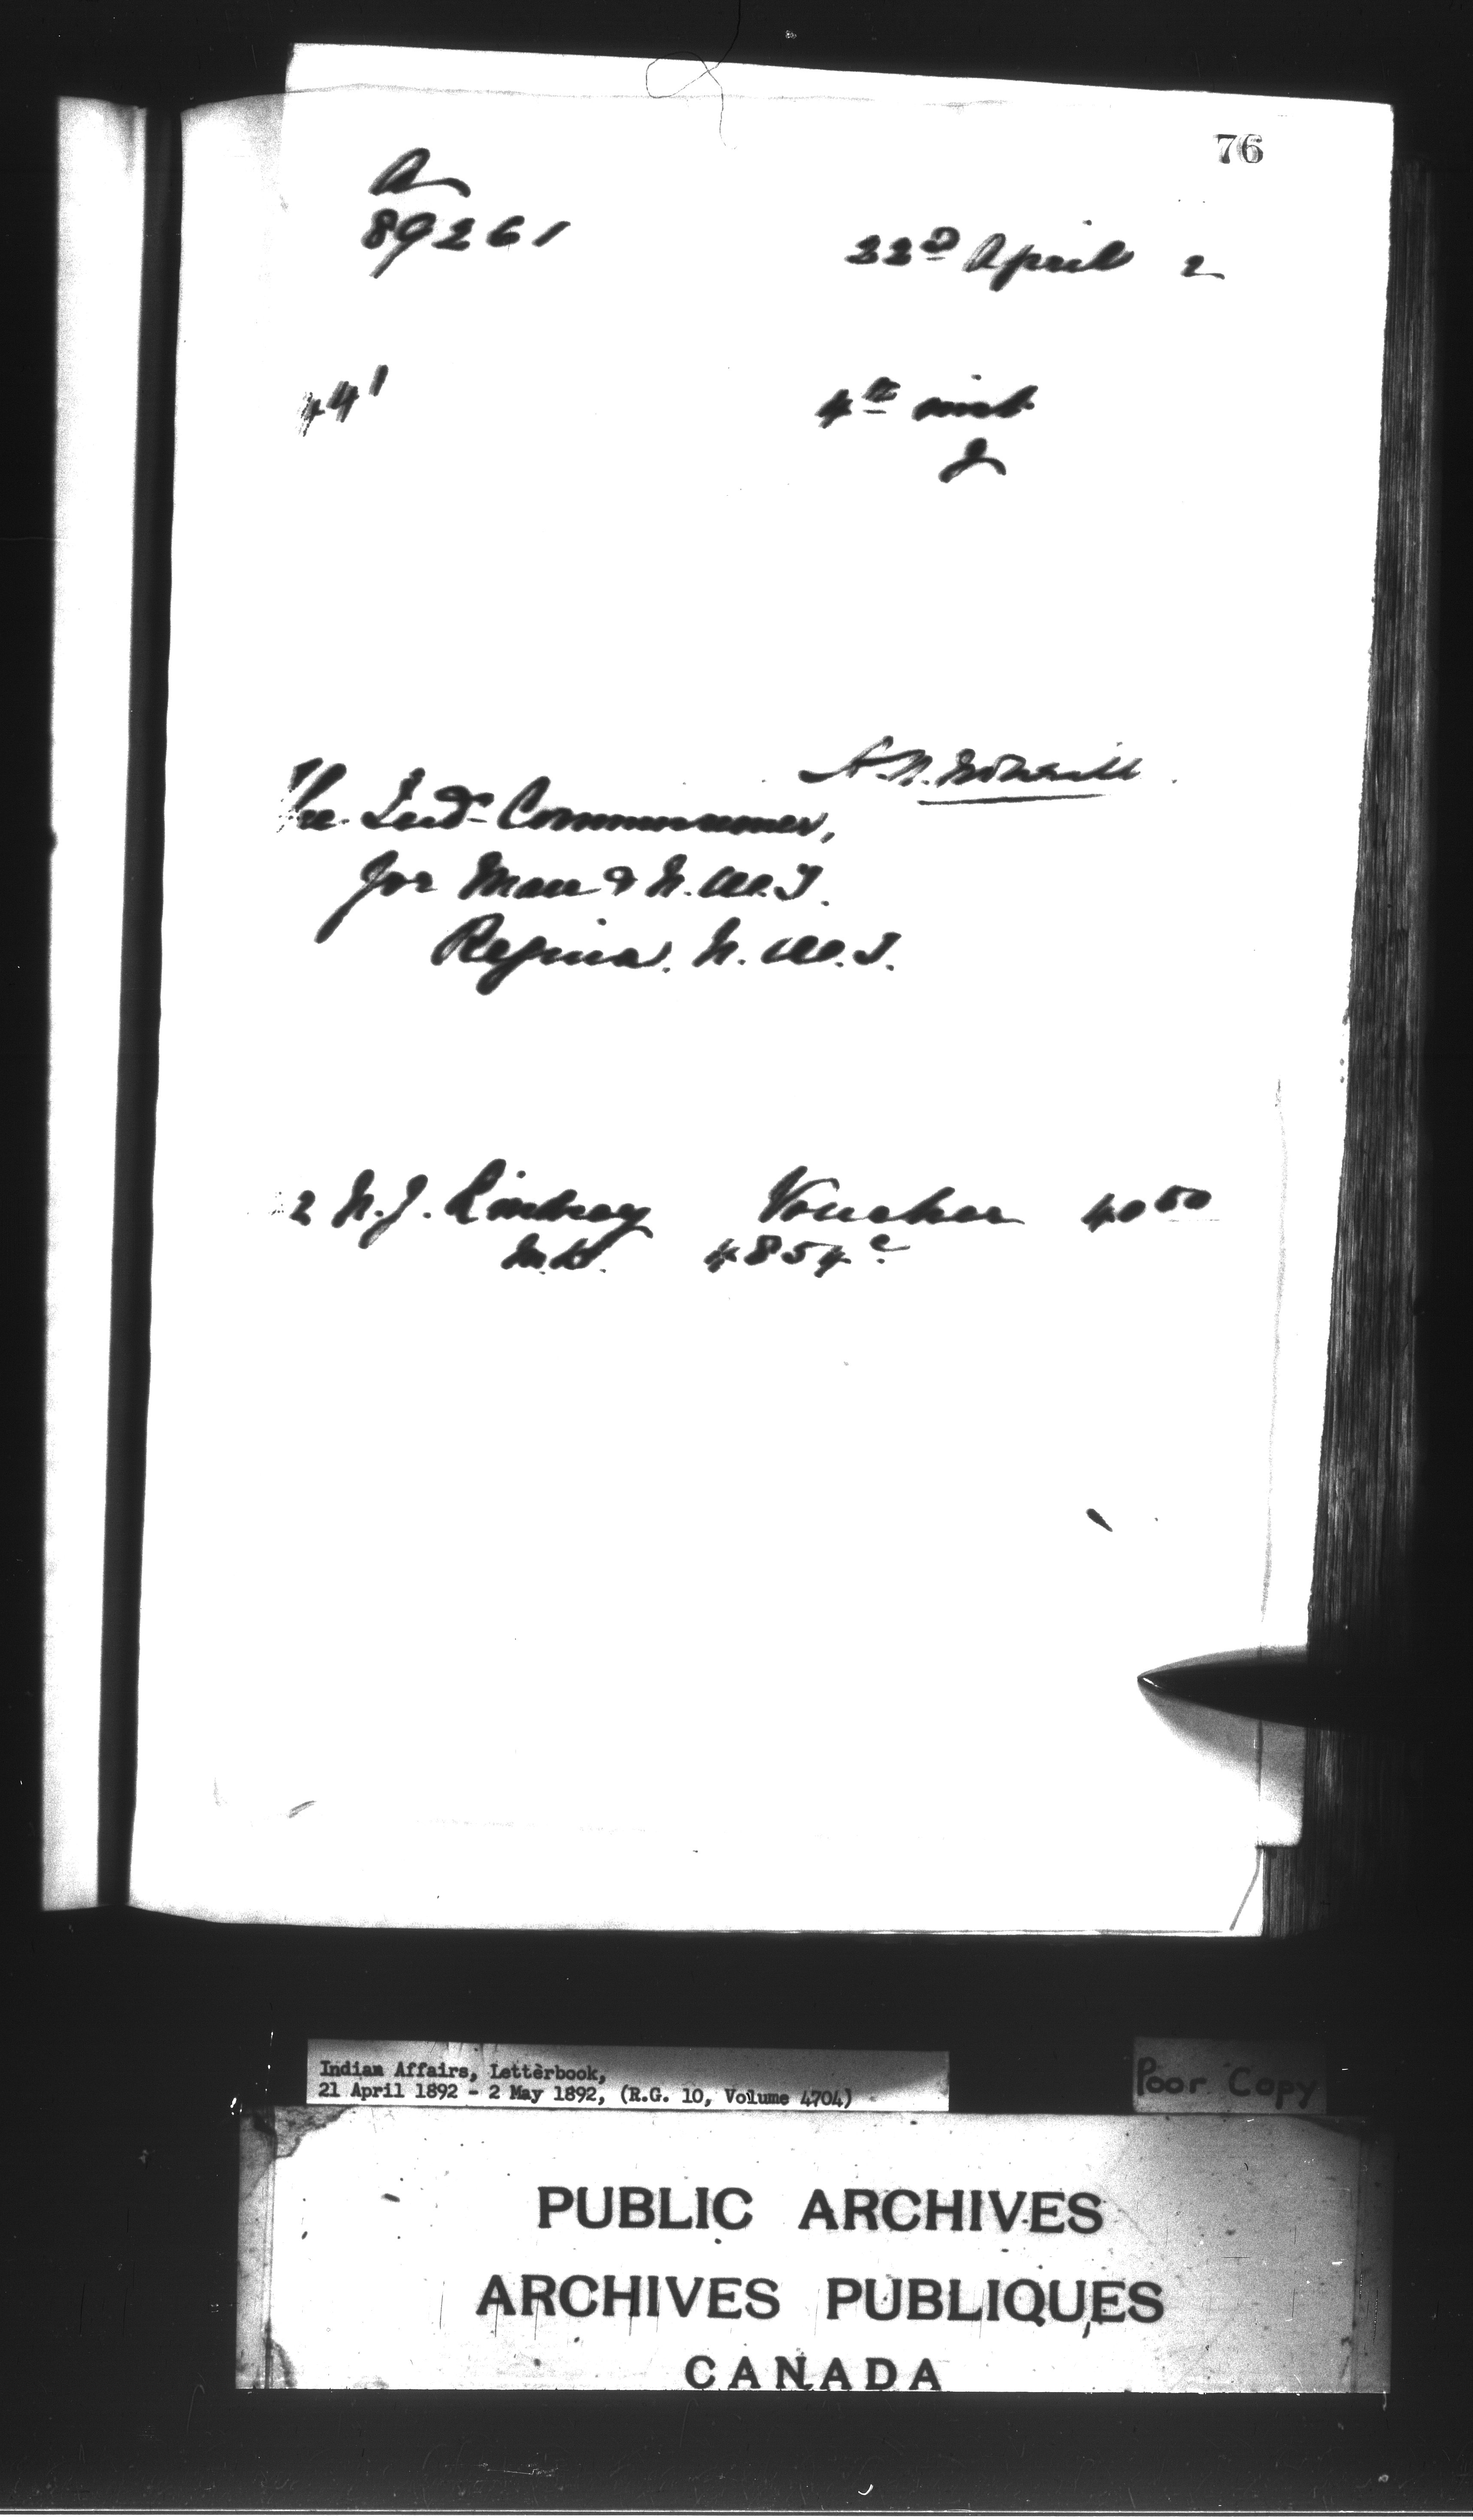 76
A
89261
22D April 2
441
4th inst
The Indn Commissioner,
for Man & N.W.T.
Regina. N.W.T.
2 N.J. Lindsay Voucher 40 50
M.D. 4854
Indian Affairs, Letterbook,
21 April 1892 - 2 May 1892, (R.G. 10, Volume 4704)
Poor Copy
PUBLIC ARCHIVES
ARCHIVES PUBLIQUES
CANADA